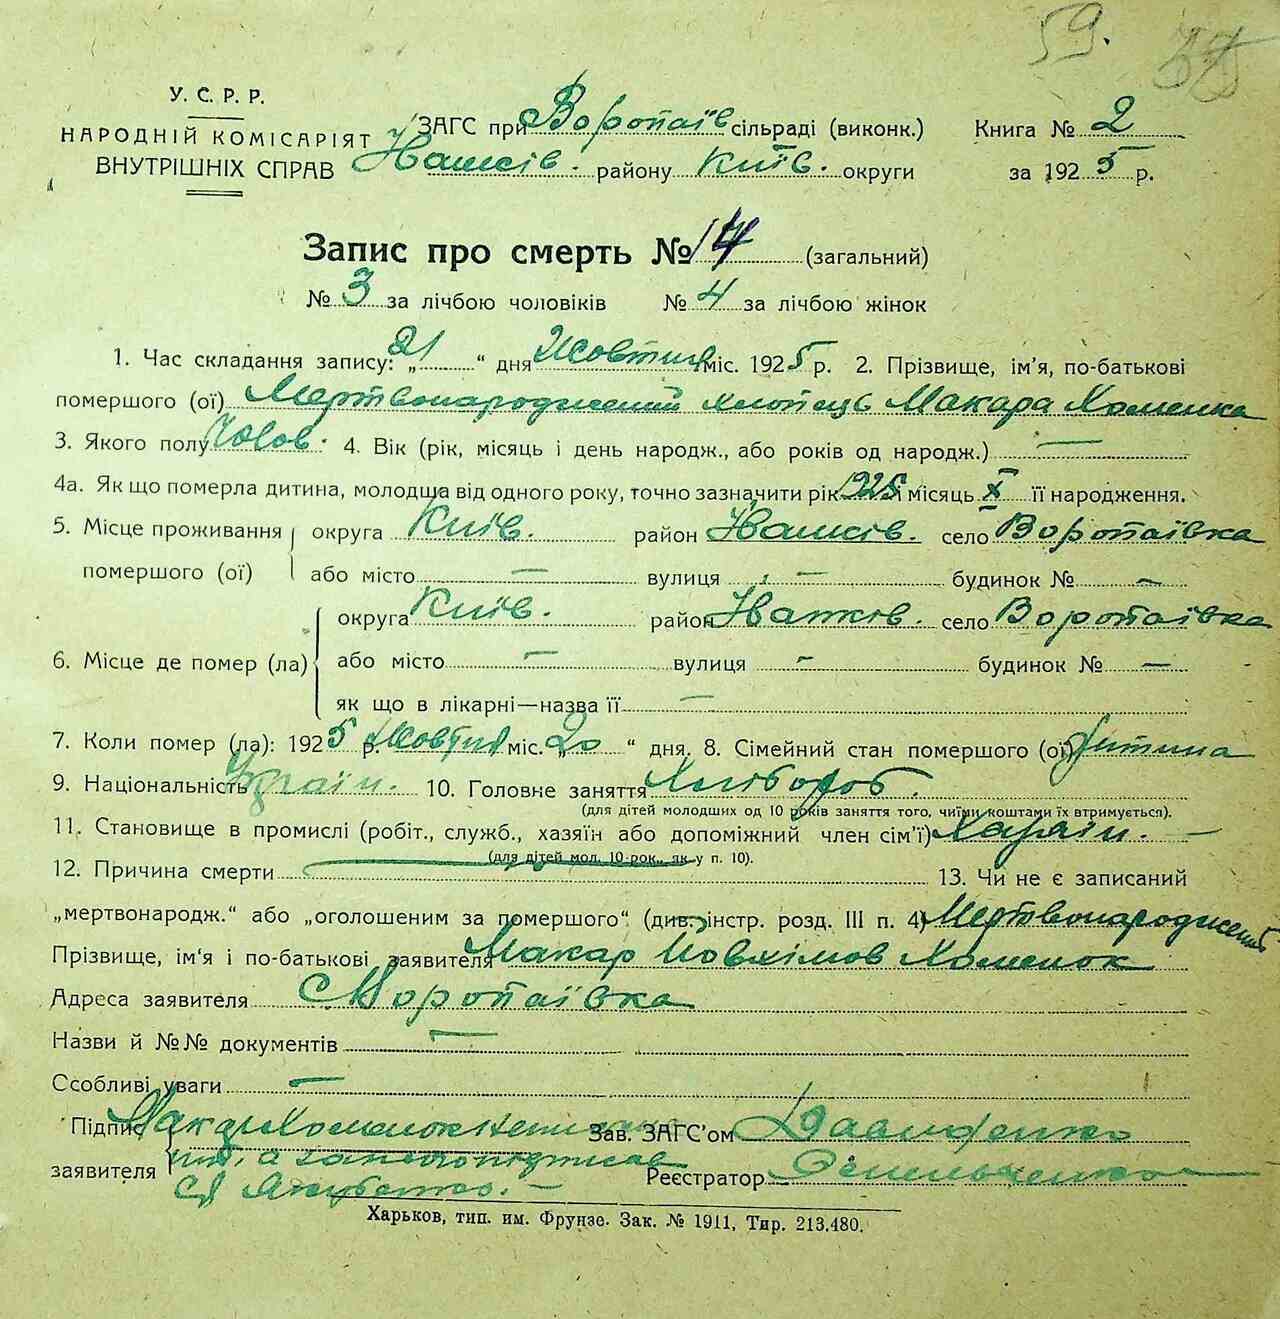 59.
У. С. Р. Р.
НАРОДНІЙ КОМІСАРІЯТ
ВНУТРІШНІХ СПРАВ
ЗАГС при Воропаїв сільраді (виконк.)
району Київ. округи
Книга № 2
за 1925 р.
Запис про смерть № 14 (загальний)
№ 3 за лічбою чоловіків № 4 за лічбою жінок
1. Час складання запису: „21“ дня Жовтня міс. 1925 р. 2. Прізвище, ім'я, по-батькові
помершого (ої) Мертвонароджений хлопець Макара Хоменка
3. Якого полу Чолов. 4. Вік (рік, місяць і день народж., або років од народж.) —
4а. Як що померла дитина, молодша від одного року, точно зазначити рік 1925 і місяць X її народження.
5. Місце проживання округа Київ. район село Воропаївка
помершого (ої) або місто — вулиця — будинок № —
округа Київ. район село Воропаївка
6. Місце де помер (ла) або місто — вулиця — будинок № —
як що в лікарні—назва її —
7. Коли помер (ла): 1925 р. Жовтня міс. „20“ дня. 8. Сімейний стан помершого (ої) дитина
9. Національність Україн. 10. Головне заняття Хлібороб.
(для дітей молодших од 10 років заняття того, чиїми коштами їх втримується).
11. Становище в промислі (робіт., служб., хазяїн або допоміжний член сім'ї) Хазяїн. —
(для дітей мол. 10-рок., як у п. 10).
12. Причина смерти — 13. Чи не є записаний
„мертвонародж.“ або „оголошеним за помершого“ (див. інстр. розд. III п. 4) Мертвонароджений
Прізвище, ім'я і по-батькові заявителя Макар Йовхімов Хоменок
Адреса заявителя С Воропаївка
Назви й №№ документів —
Ссобливі уваги —
Підпис Макар Хоменок Зав. ЗАГС'ом Давиденко
заявителя а за него підписав Реєстратор Омельченко
Якубенко. —
Харьков, тип. им. Фрунзе. Зак. № 1911, Тир. 213.480.